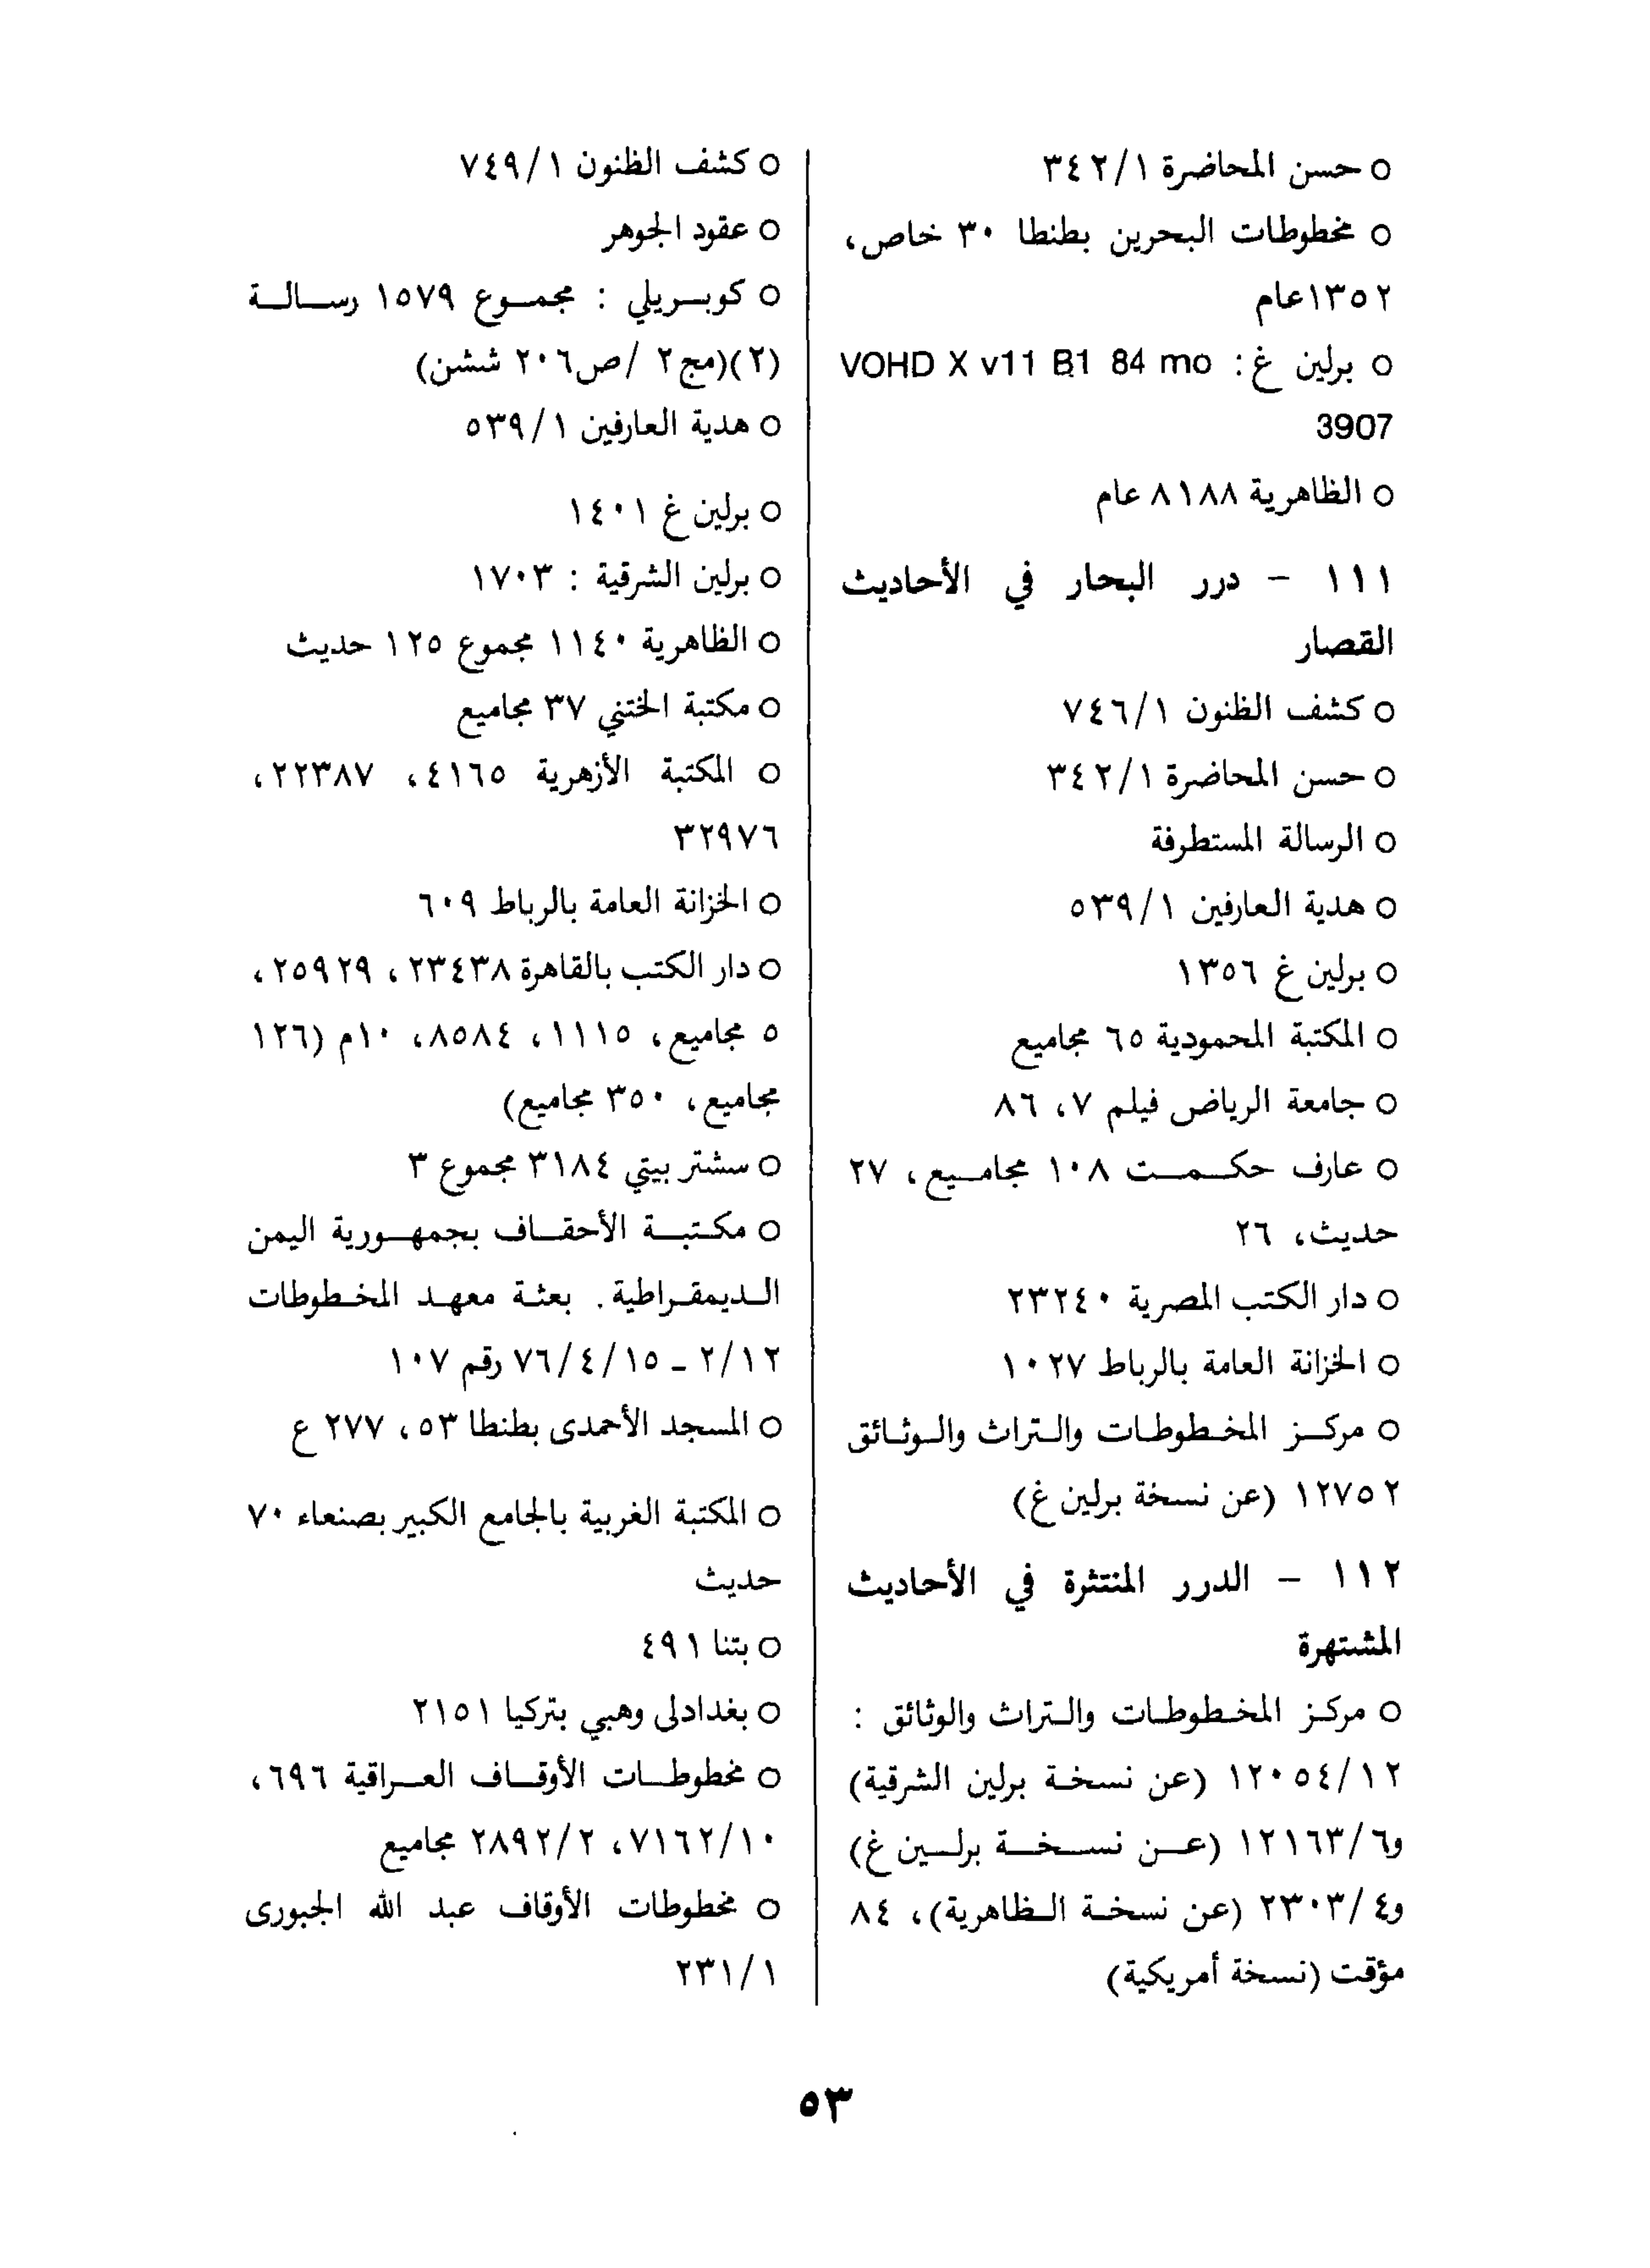 ○ حسن المحاضرة ٣٤٢/١
○ مخطوطات البحرين بطنطا ٣٠ خاص،
١٣٥٢عام
○ برلين غ: VOHD X v11 B1 84 mo
3907
○ الظاهرية ٨١٨٨ عام
١١١ - درر البحار في الأحاديث
القصار
○ كشف الظنون ٧٤٦/١
○ حسن المحاضرة ٣٤٢/١
○ الرسالة المستطرفة
○ هدية العارفين ٥٣٩/١
○ برلين غ ١٣٥٦
○ المكتبة المحمودية ٦٥ مجاميع
○ جامعة الرياض فيلم ٧، ٨٦
○ عارف حكمت ١٠٨ مجاميع، ٢٧
حديث، ٢٦
○ دار الكتب المصرية ٢٣٢٤٠
○ الخزانة العامة بالرباط ١٠٢٧
○ مركز المخطوطات والتراث والوثائق
١٢٧٥٢ (عن نسخة برلين غ)
١١٢ - الدرر المنتثرة في الأحاديث
المشتهرة
○ مركز المخطوطات والتراث والوثائق :
١٢٠٥٤/١٢ (عن نسخة برلين الشرقية)
و١٢١٦٣/٦ (عن نسخة برلين غ)
و٢٣٠٣/٤ (عن نسخة الظاهرية)، ٨٤
مؤقت (نسخة أمريكية)
○ كشف الظنون ٧٤٩/١
○ عقود الجوهر
○ كوبريلي : مجموع ١٥٧٩ رسالة
(٢)(مج٢ /ص٢٠٦ ششن)
○ هدية العارفين ٥٣٩/١
○ برلين غ ١٤٠١
○ برلين الشرقية : ١٧٠٣
○ الظاهرية ١١٤٠ مجموع ١٢٥ حديث
○ مكتبة الختني ٣٧ مجاميع
○ المكتبة الأزهرية ٤١٦٥، ٢٢٣٨٧،
٣٢٩٧٦
○ الخزانة العامة بالرباط ٦٠٩
○ دار الكتب بالقاهرة ٢٣٤٣٨، ٢٥٩٢٩،
٥ مجاميع، ١١١٥، ٨٥٨٤، ١٠م (١٢٦
مجاميع، ٣٥٠ مجاميع)
○ سشتر بيتي ٣١٨٤ مجموع ٣
○ مكتبة الأحقاف بجمهورية اليمن
الديمقراطية. بعثة معهد المخطوطات
٢/١٢ - ٧٦/٤/١٥ رقم ١٠٧
○ المسجد الأحمدى بطنطا ٥٣، ٢٧٧ ع
○ المكتبة الغربية بالجامع الكبير بصنعاء ٧٠
حديث
○ بتنا ٤٩١
○ بغدادلى وهبي بتركيا ٢١٥١
○ مخطوطات الأوقاف العراقية ٦٩٦،
٧١٦٢/١٠، ٢٨٩٢/٢ مجاميع
○ مخطوطات الأوقاف عبد الله الجبورى
٢٣١/١
٥٣